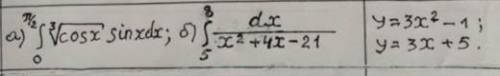 а) ∫₀^{π/2} ∛cosx sinxdx; б) ∫₅⁸ dx/(x²+4x-21)
y=3x²-1;
y=3x+5.